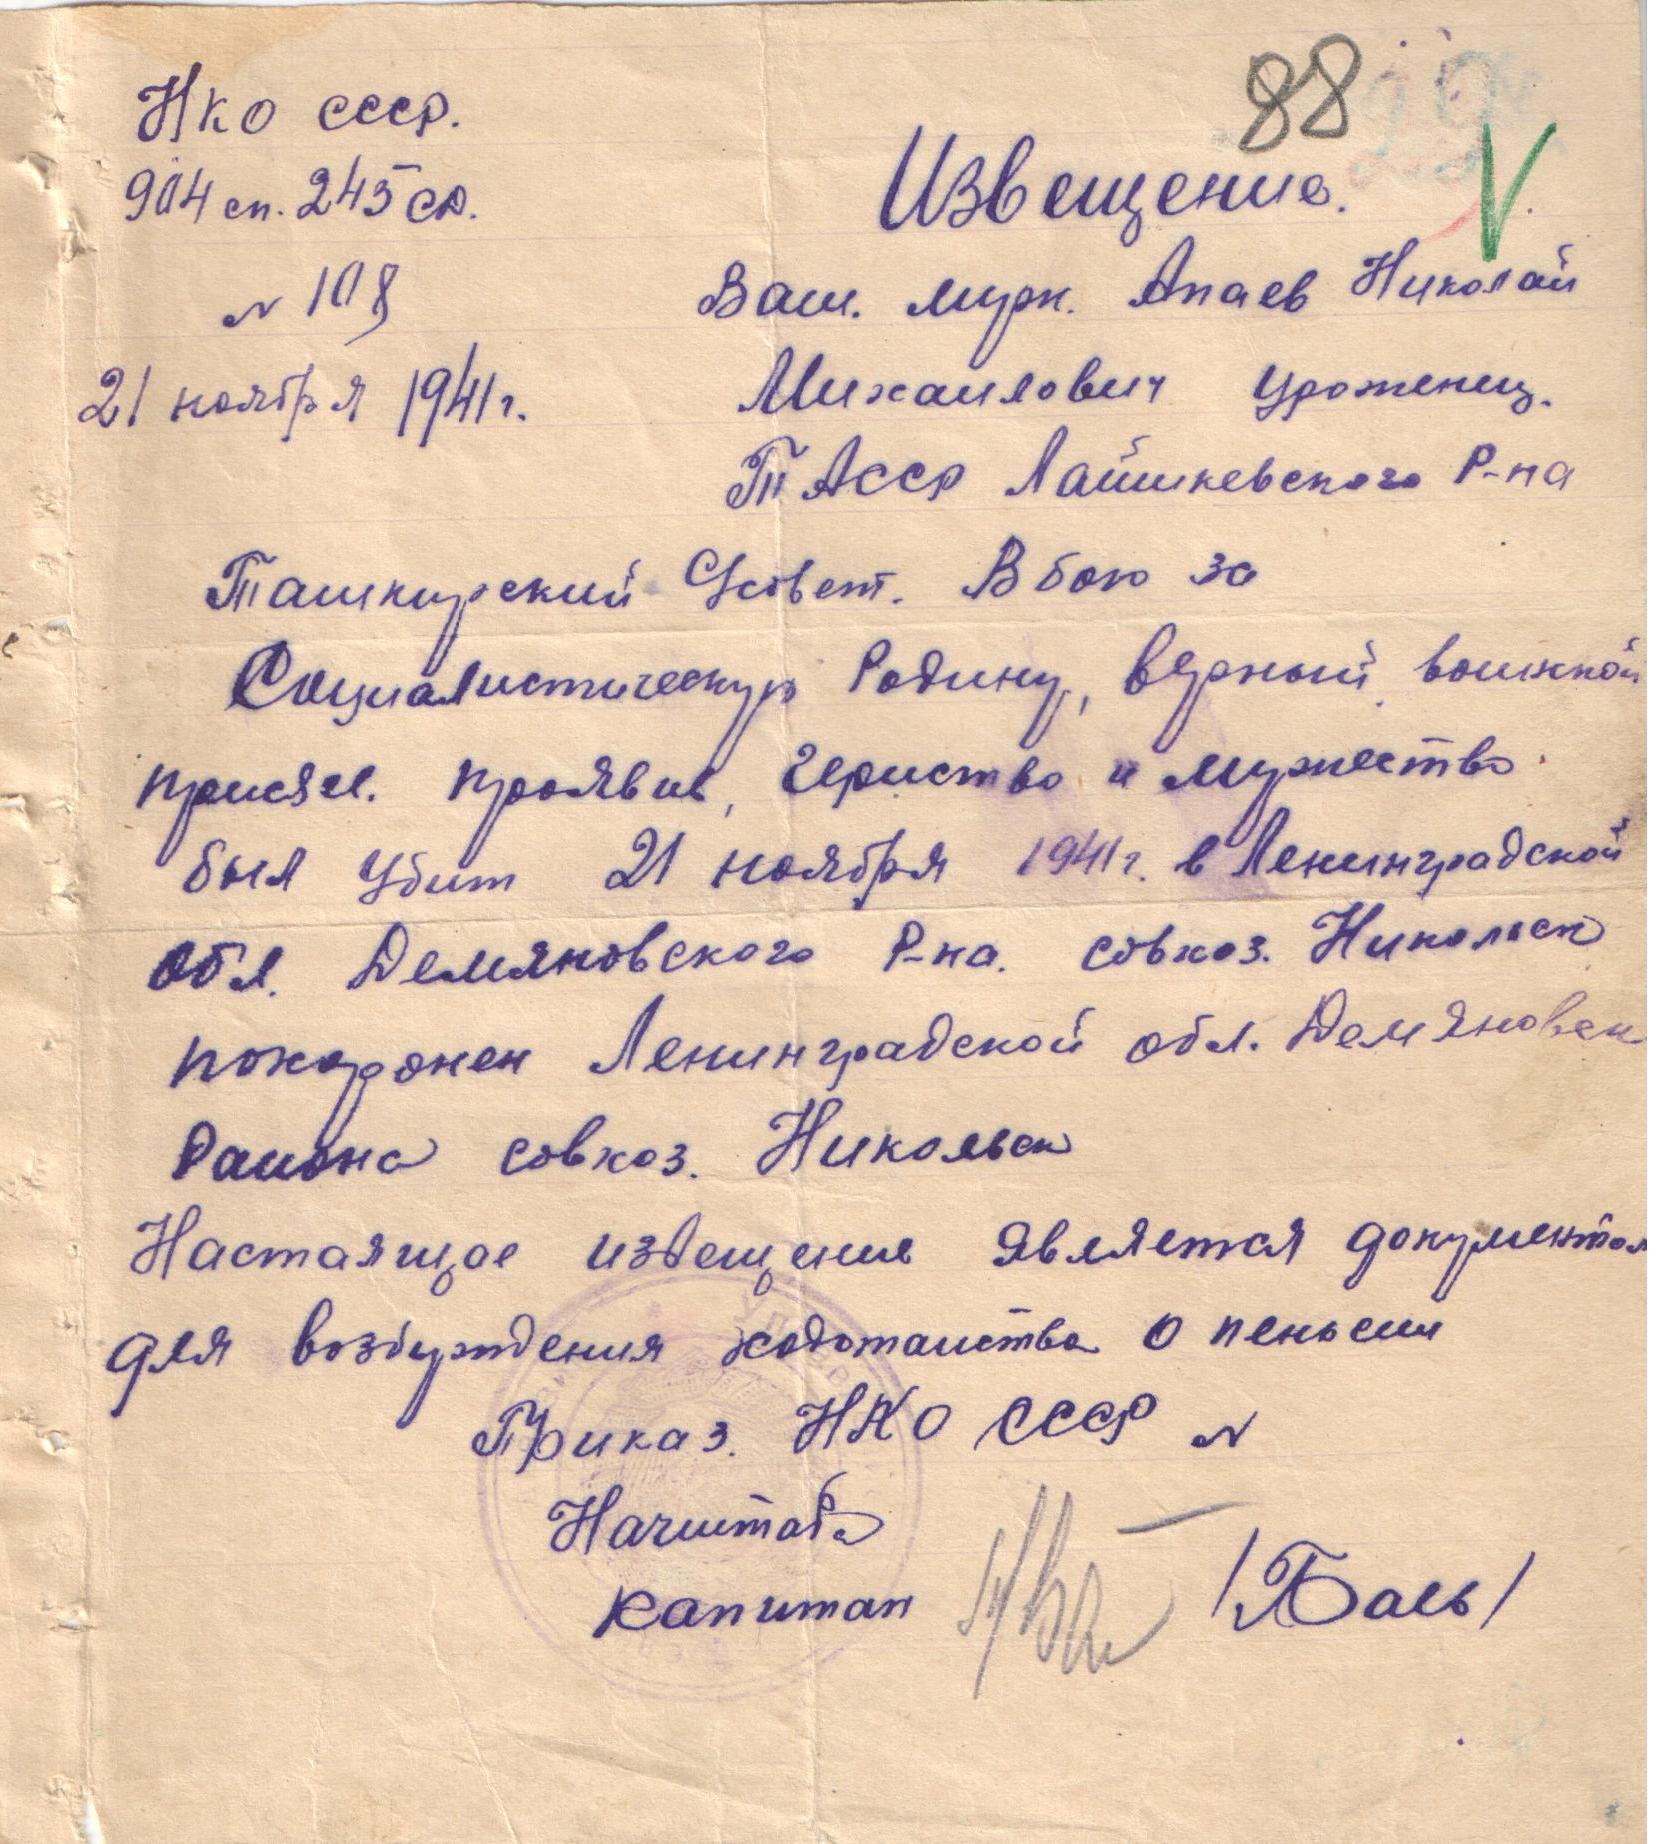 88
НКО СССР.
904 сп. 245 сд.
N 108
21 ноября 1941 г.
Извещение.
Ваш. мурж. Апаев Николай
Михаилович урожениц.
ТАССР Лайшкевского р-на
Ташкирский Совет. В бою за
Социалистическую Родину, верный воинкой
присяге. проявив, героиство и мужество
был убит 21 ноября 1941 г. в Ленинградской
обл. Демяновского р-на. совхоз. Никольск
похоронен Ленинградской обл. Демяновск
Района совхоз. Никольск
Настаящое извещение является документом
для возбуждения ходотаиства о пеньсии
Приказ. НКО СССР N
Начштаба
капитан /Баев/